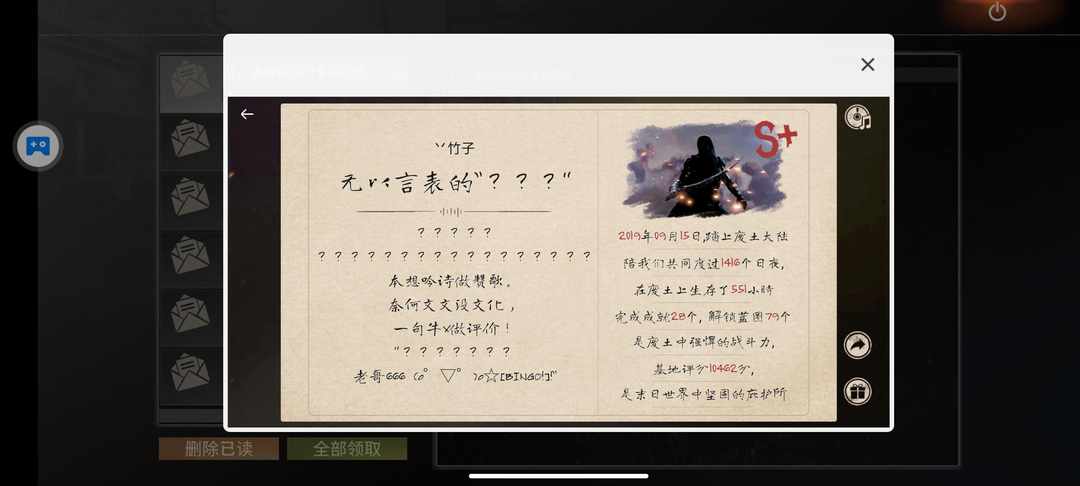 丷竹子
无以言表的“？？？“
？？？？？
？？？？？？？？？？？？？？？？？
本想吟诗做赞歌。
奈何文文没文化，
一句牛x做评价！
“？？？？？？？
老哥666（o゜▽゜）o☆[BINGO!]"
S+
2019年09月15日,踏上废土大陆
陪我们共同度过1416个日夜,
在废土上生存了551小时
完成成就28个，解锁蓝图79个
是废土中强悍的战斗力,
基地评分10462分,
是末日世界中坚固的庇护所
删除已读
全部领取